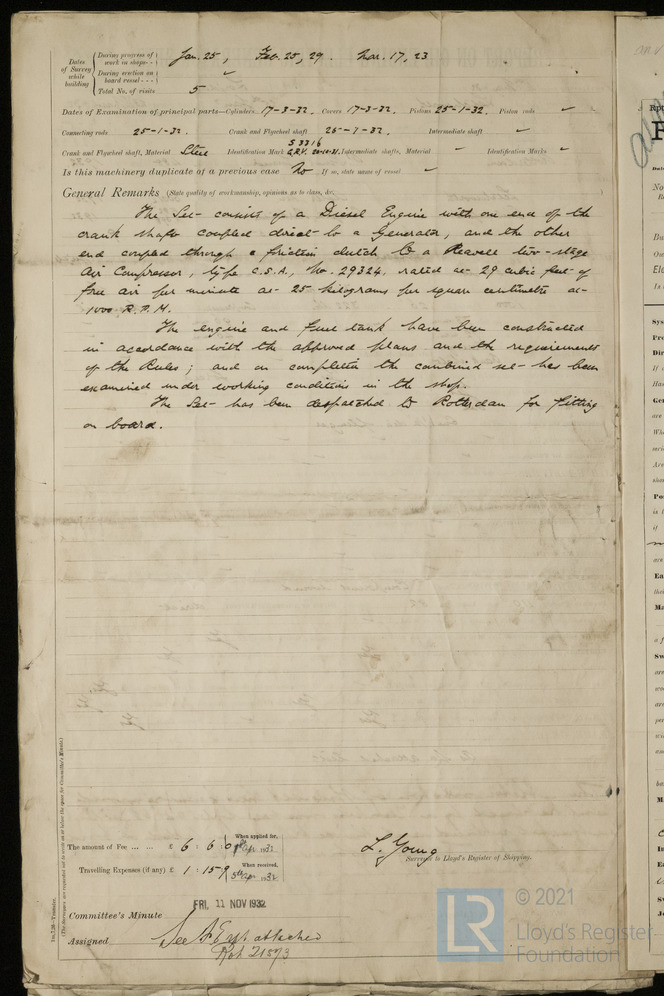 Dates of Survey while building
During progress of work in shops - - Jan. 25, Feb. 25, 29. Mar. 17, 23
During erection on board vessel - - -
Total No. of visits 5
Dates of Examination of principal parts—Cylinders 17-3-32. Covers 17-3-32. Pistons 25-1-32. Piston rods ✓
Connecting rods 25-1-32. Crank and Flywheel shaft 25-1-32. Intermediate shaft ✓
Crank and Flywheel shaft, Material Steel Identification Mark S 3316 G.R.V. 20-10-31. Intermediate shafts, Material Identification Marks ✓
Is this machinery duplicate of a previous case No If so, state name of vessel
General Remarks (State quality of workmanship, opinions as to class, &c.
The Set consists of a Diesel Engine with one end of the
crank shaft coupled direct to a Generator, and the other
end coupled through a friction clutch to a Reavell two-stage
Air Compressor, type C.S.A., No. 29324, rated at 29 cubic feet of
free air per minute at 25 kilograms per square centimetre at
1000 R.P.M.
The engine and fuel tank have been constructed
in accordance with the approved plans and the requirements
of the Rules; and on completion the combined set has been
examined under working conditions in the shop.
The Set has been despatched to Rotterdam for fitting
on board.
The amount of Fee ... ... £ 6 : 6 : 0 When applied for, Apr. 1932
Travelling Expenses (if any) £ 1 : 15 : 9 When received, 5th Apr. 1932
L. Young
Surveyor to Lloyd's Register of Shipping.
Committee's Minute FRI. 11 NOV 1932
Assigned See attached
Rot 21573
1m.7.28—Transfer.
(The Surveyors are requested not to write on or below the space for Committee's Minute.)
LR
© 2021
Lloyd's Register
Foundation